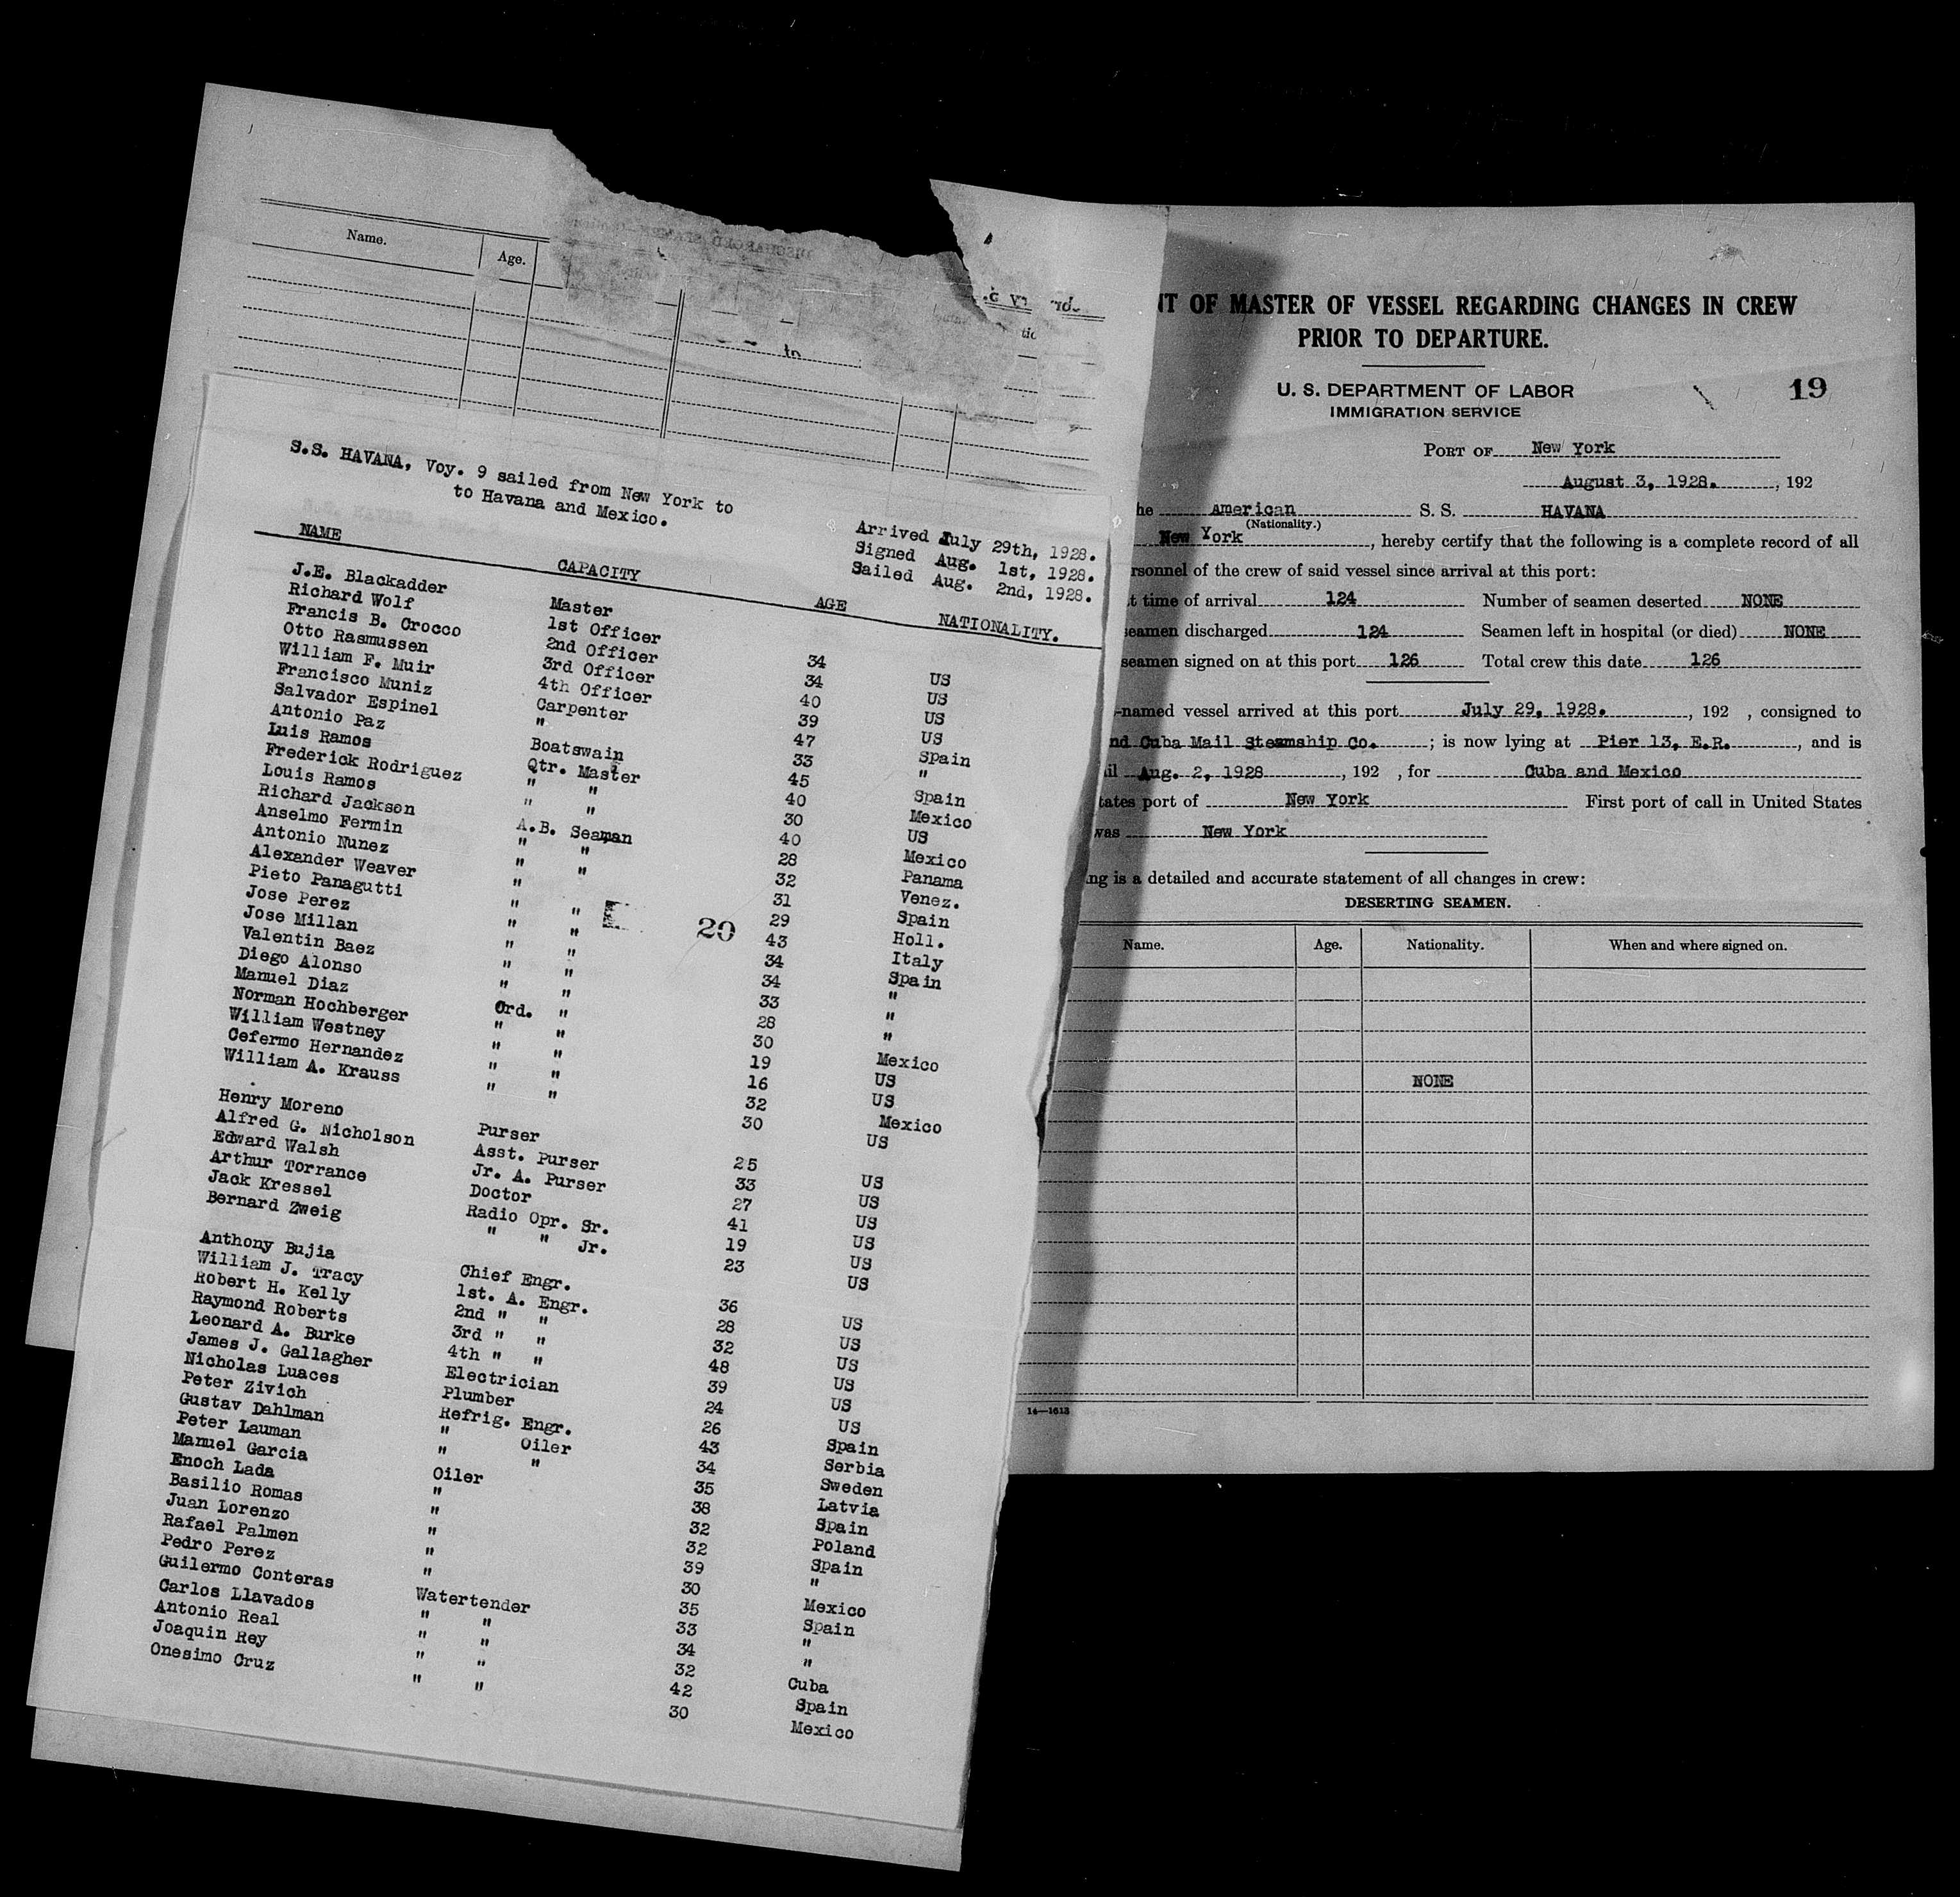 Name. Age.
S.S. HAVANA, Voy. 9 sailed from New York to
to Havana and Mexico.
Arrived July 29th, 1928.
Signed Aug. 1st, 1928.
Sailed Aug. 2nd, 1928.
NAME CAPACITY AGE NATIONALITY.
J.E. Blackadder Master
Richard Wolf 1st Officer 34 US
Francis B. Crocco 2nd Officer 34 US
Otto Rasmussen 3rd Officer 40 US
William F. Muir 4th Officer 39 US
Francisco Muniz Carpenter 47 Spain
Salvador Espinel " 33 "
Antonio Paz Boatswain 45 Spain
Luis Ramos Qtr. Master 40 Mexico
Frederick Rodriguez " " 30 US
Louis Ramos " " 40 Mexico
Richard Jackson A.B. Seaman 28 Panama
Anselmo Fermin " " 32 Venez.
Antonio Nunez " " 31 Spain
Alexander Weaver " " 29 Holl.
Pieto Panagutti " " 43 Italy
Jose Perez " " 34 Spain
Jose Millan " " 34 "
Valentin Baez " " 33 "
Diego Alonso " " 28 "
Manuel Diaz Ord. " 30 Mexico
Norman Hochberger " " 19 US
William Westney " " 16 US
Cefermo Hernandez " " 32 Mexico
William A. Krauss " " 30 US
20
Henry Moreno Purser 25 US
Alfred G. Nicholson Asst. Purser 33 US
Edward Walsh Jr. A. Purser 27 US
Arthur Torrance Doctor 41 US
Jack Kressel Radio Opr. Sr. 19 US
Bernard Zweig " " Jr. 23 US
Anthony Bujia Chief Engr. 36 US
William J. Tracy 1st. A. Engr. 28 US
Robert H. Kelly 2nd " " 32 US
Raymond Roberts 3rd " " 48 US
Leonard A. Burke 4th " " 39 US
James J. Gallagher Electrician 24 US
Nicholas Luaces Plumber 26 Spain
Peter Zivich Refrig. Engr. 43 Serbia
Gustav Dahlman " Oiler 34 Sweden
Peter Lauman " " 35 Latvia
Manuel Garcia Oiler 38 Spain
Enoch Lada " 32 Poland
Basilio Romas " 32 Spain
Juan Lorenzo " 39 "
Rafael Palmen " 30 Mexico
Pedro Perez " 35 Spain
Guilermo Conteras Watertender 33 "
Carlos Llavados " " 34 "
Antonio Real " " 32 Cuba
Joaquin Rey " " 42 Spain
Onesimo Cruz " " 30 Mexico
NT OF MASTER OF VESSEL REGARDING CHANGES IN CREW
PRIOR TO DEPARTURE.
U. S. DEPARTMENT OF LABOR
IMMIGRATION SERVICE
19
PORT OF New York
August 3, 1928. , 192
he American S. S. HAVANA
(Nationality.)
New York , hereby certify that the following is a complete record of all
rsonnel of the crew of said vessel since arrival at this port:
t time of arrival 124 Number of seamen deserted NONE
seamen discharged 124 Seamen left in hospital (or died) NONE
seamen signed on at this port 126 Total crew this date 126
-named vessel arrived at this port July 29, 1928. , 192 , consigned to
nd Cuba Mail Steamship Co. ; is now lying at Pier 13, E.R. , and is
il Aug. 2, 1928 , 192 , for Cuba and Mexico
tates port of New York First port of call in United States
was New York
ng is a detailed and accurate statement of all changes in crew:
DESERTING SEAMEN.
Name. Age. Nationality. When and where signed on.
NONE
14—1613